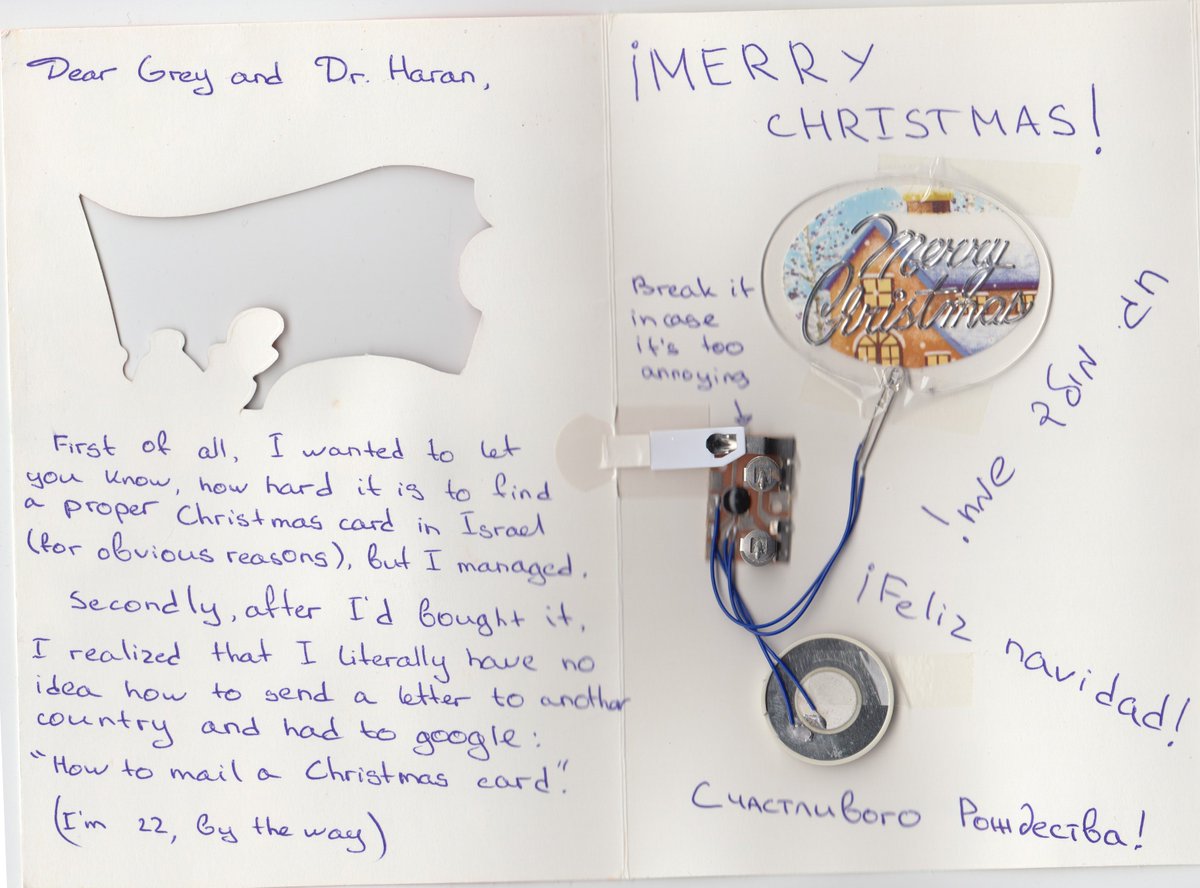 Dear Grey and Dr. Haran,
First of all, I wanted to let
you know, how hard it is to find
a proper Christmas card in Israel
(for obvious reasons), but I managed.
Secondly, after I'd bought it,
I realized that I literally have no
idea how to send a letter to another
country and had to google:
"How to mail a Christmas card".
(I'm 22, by the way)
¡MERRY
CHRISTMAS!
Merry
Christmas
Break it
in case
it's too
annoying
חג מולד שמח!
¡Feliz navidad!
Счастливого Рождества!